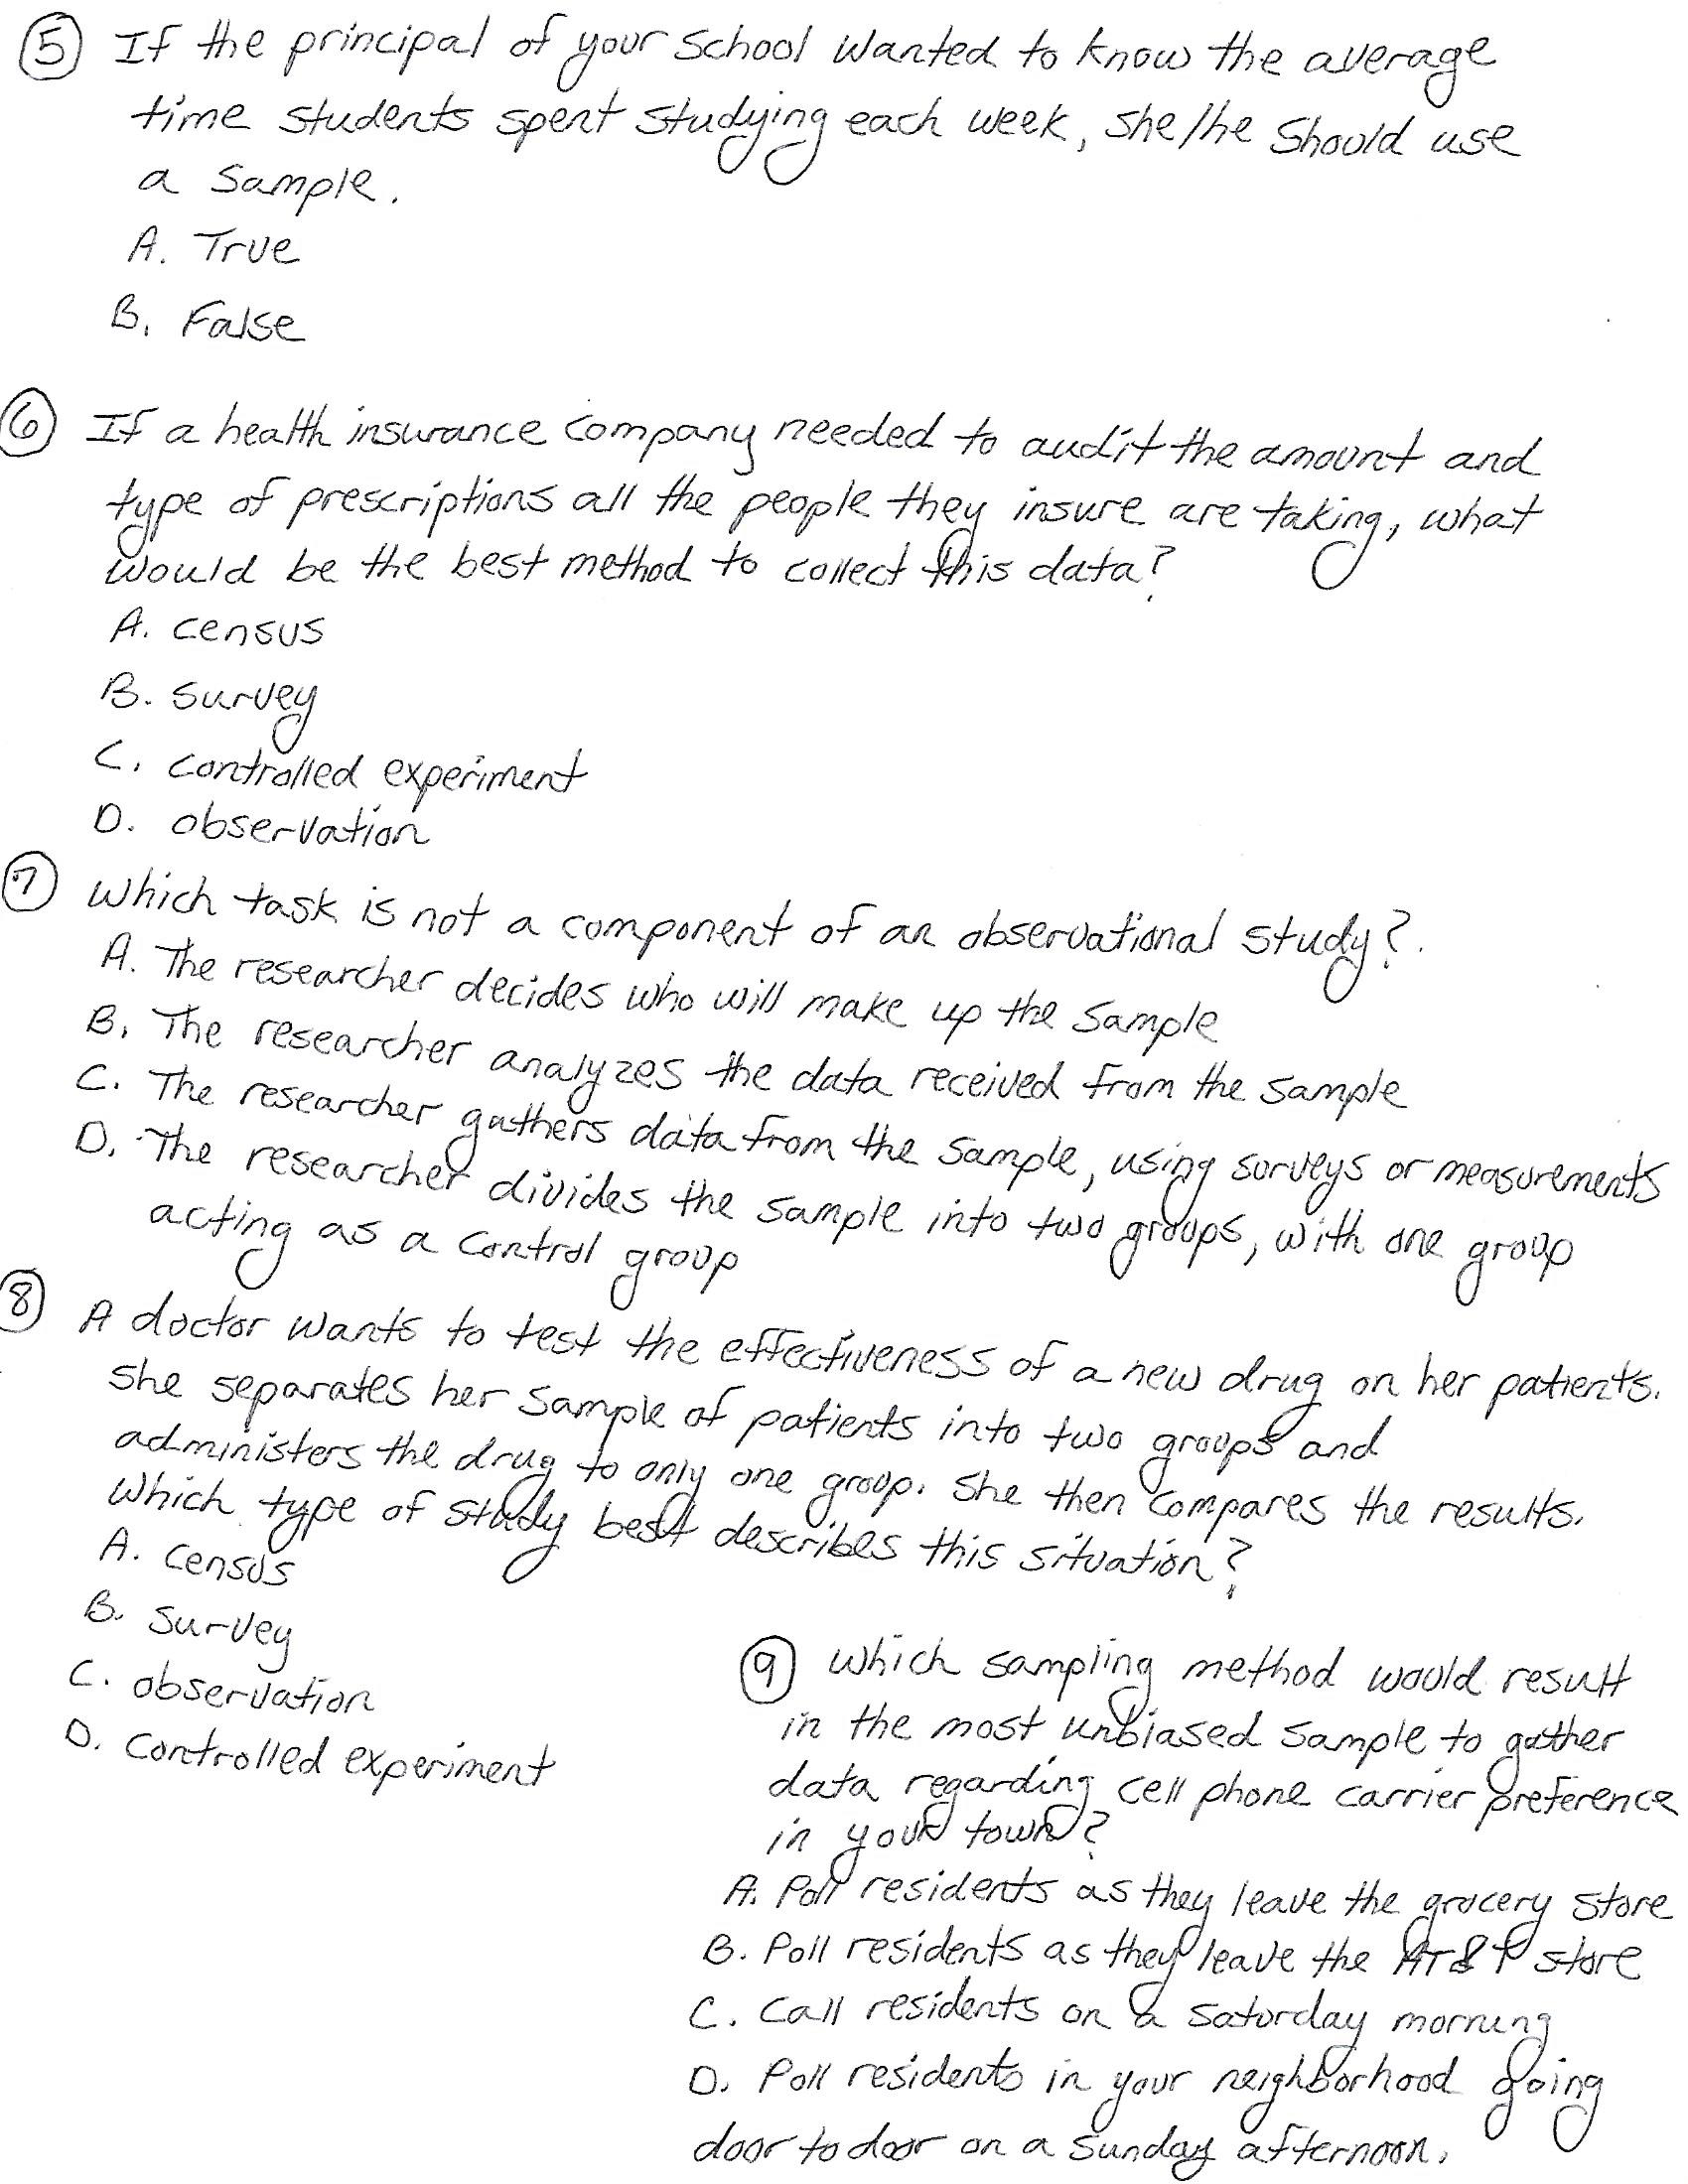 5 If the principal of your school wanted to know the average
time students spent studying each week, she/he should use
a sample.
A. True
B. False
6 If a health insurance company needed to audit the amount and
type of prescriptions all the people they insure are taking, what
would be the best method to collect this data?
A. census
B. survey
C. controlled experiment
D. observation
7 Which task is not a component of an observational study?
A. The researcher decides who will make up the sample
B. The researcher analyzes the data received from the sample
C. The researcher gathers data from the sample, using surveys or measurements
D. The researcher divides the sample into two groups, with one group
acting as a control group
8 A doctor wants to test the effectiveness of a new drug on her patients.
She separates her sample of patients into two groups and
administers the drug to only one group. She then compares the results.
Which type of study best describes this situation?
A. census
B. survey
C. observation
D. controlled experiment
9 Which sampling method would result
in the most unbiased sample to gather
data regarding cell phone carrier preference
in your town?
A. Poll residents as they leave the grocery store
B. Poll residents as they leave the AT&T store
C. Call residents on a Saturday morning
D. Poll residents in your neighborhood going
door to door on a Sunday afternoon.